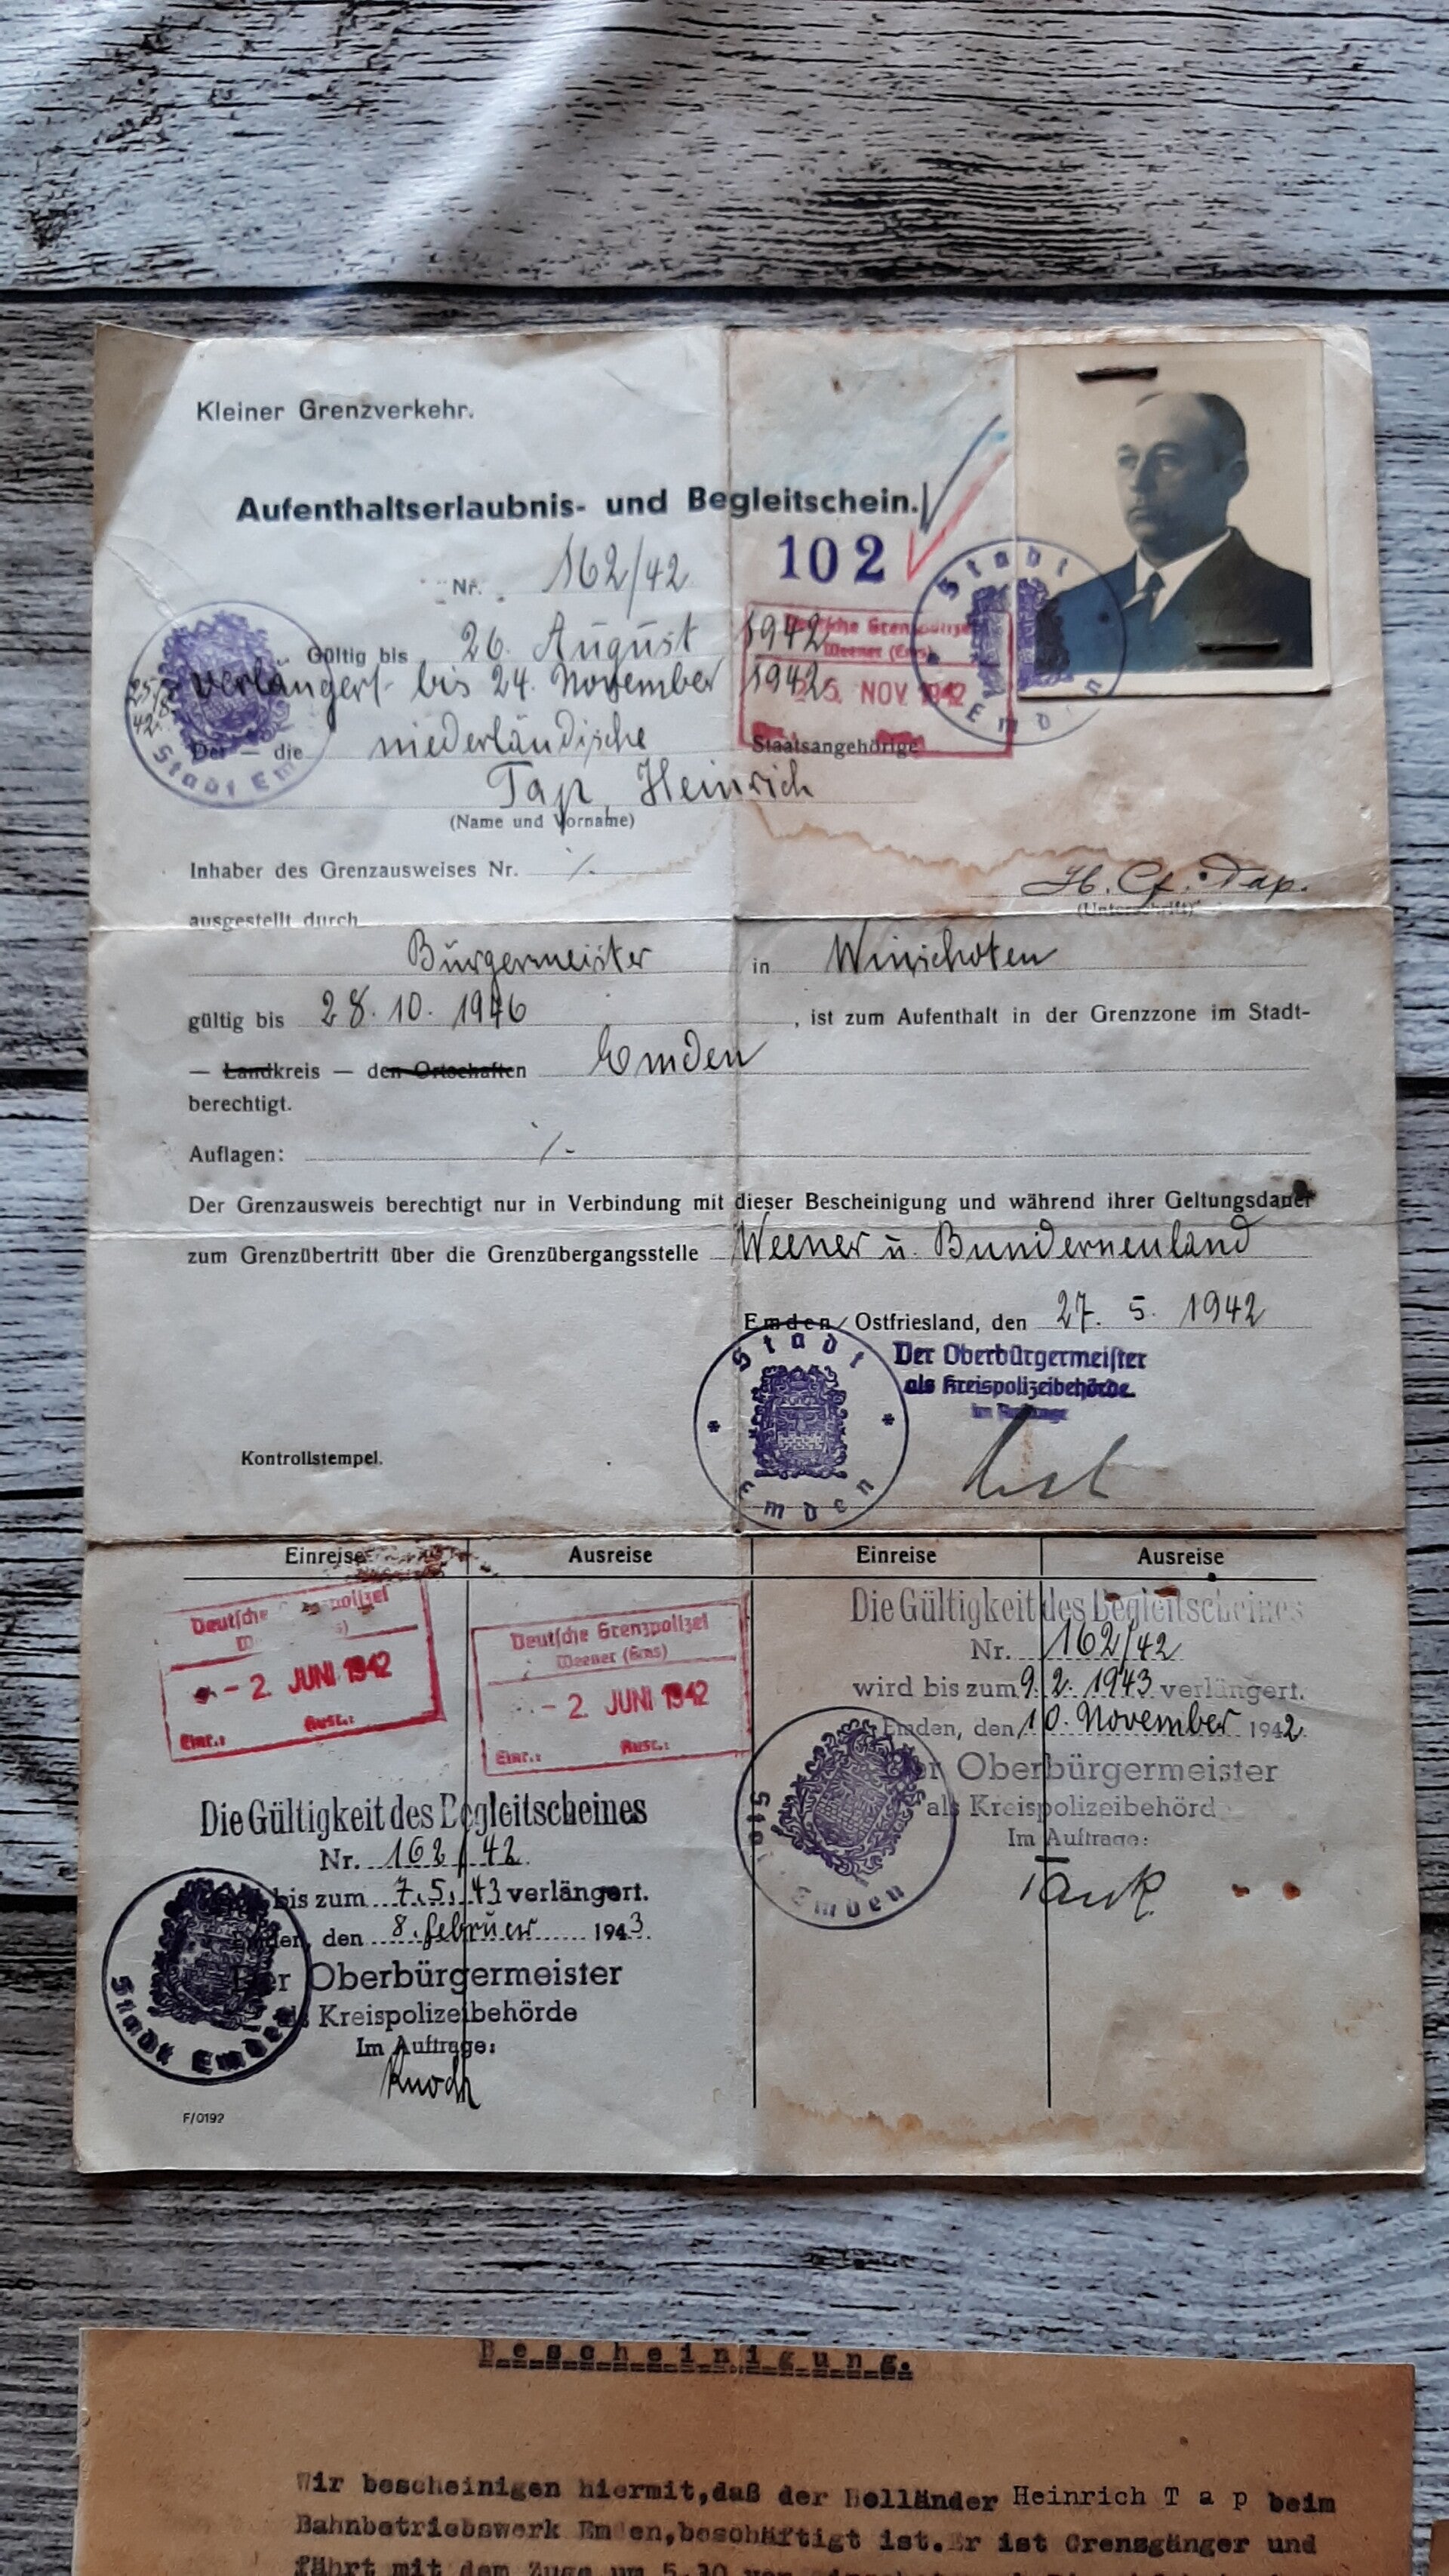 Kleiner Grenzverkehr.
Aufenthaltserlaubnis- und Begleitschein.
Nr. 162/42
102
Gültig bis 26. August 1942
verlängert bis 24. November 1942
25/8
42.
Deutsche Grenzpolizei
Weener (Ems)
25. NOV. 1942
Stadt Emden
Stadt Emden
Der — die niederländische Staatsangehörige
Tap, Heinrich
(Name und Vorname)
Inhaber des Grenzausweises Nr. ·/.
H. Cf. Tap.
(Unterschrift)
ausgestellt durch
Bürgermeister in Winschoten
gültig bis 28. 10. 1946, ist zum Aufenthalt in der Grenzzone im Stadt-
— Landkreis — den Ortschaften Emden
berechtigt.
Auflagen: ·/.
Der Grenzausweis berechtigt nur in Verbindung mit dieser Bescheinigung und während ihrer Geltungsdauer
zum Grenzübertritt über die Grenzübergangsstelle Weener u. Bunderneuland
Emden/Ostfriesland, den 27. 5. 1942
Der Oberbürgermeister
als Kreispolizeibehörde.
Im Auftrage
Stadt Emden
Kontrollstempel.
Einreise Ausreise Einreise Ausreise
Deutsche Grenzpolizei
- 2. JUNI 1942
Einr.: Ausr.:
Deutsche Grenzpolizei
Weener (Ems)
- 2. JUNI 1942
Einr.: Ausr.:
Die Gültigkeit des Begleitscheines
Nr. 162/42
wird bis zum 9. 2. 1943 verlängert.
Emden, den 10. November 1942.
Der Oberbürgermeister
als Kreispolizeibehörd
Im Auftrage:
Stadt Emden
Die Gültigkeit des Begleitscheines
Nr. 162/42
bis zum 7.5.43 verlängert.
Emden, den 8. februar 1943.
Der Oberbürgermeister
als Kreispolizeibehörde
Im Auftrage:
Knoch
Stadt Emden
F/0192
Bescheinigung.
Wir bescheinigen hiermit,daß der Holländer Heinrich Tap beim
Bahnbetriebswerk Emden,beschäftigt ist.Er ist Grenzgänger und
fährt mit dem Zuge um 5.30 von